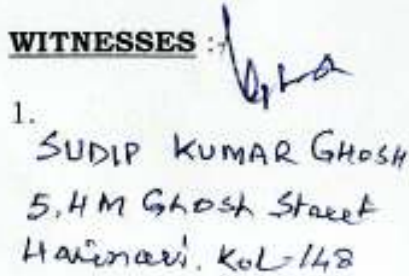 WITNESSES :-
1.
SUDIP KUMAR GHOSH
5, H M Ghosh Street
Harinavi. KOL-148